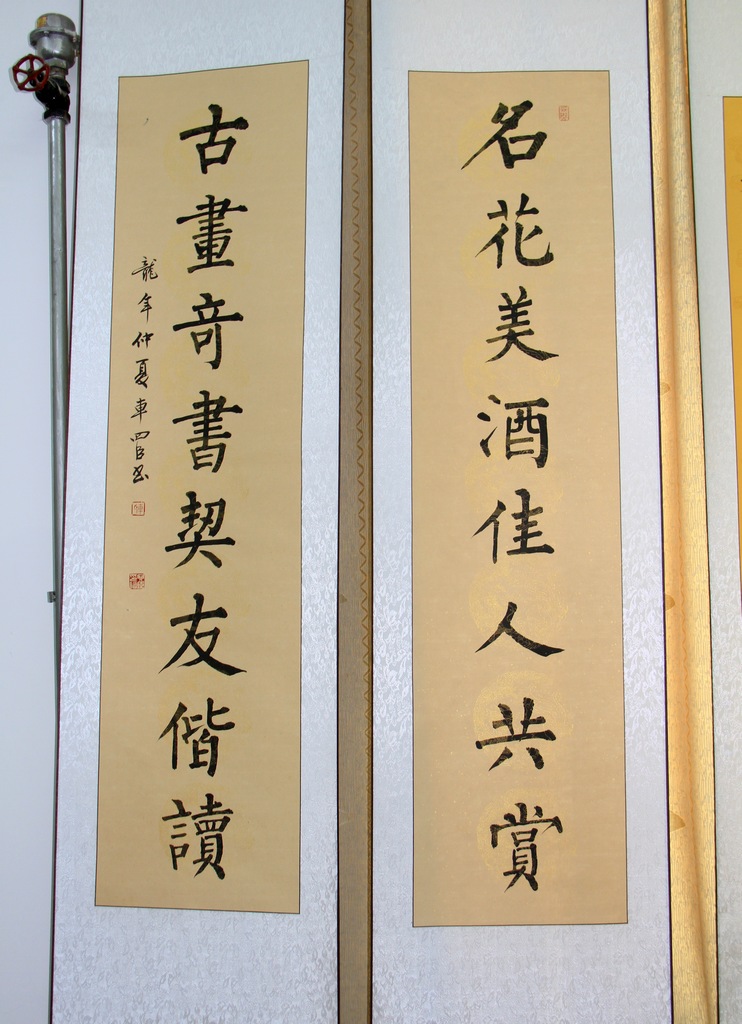 名花美酒佳人共賞
古畫奇書契友偕讀
龍年仲夏車四臣書